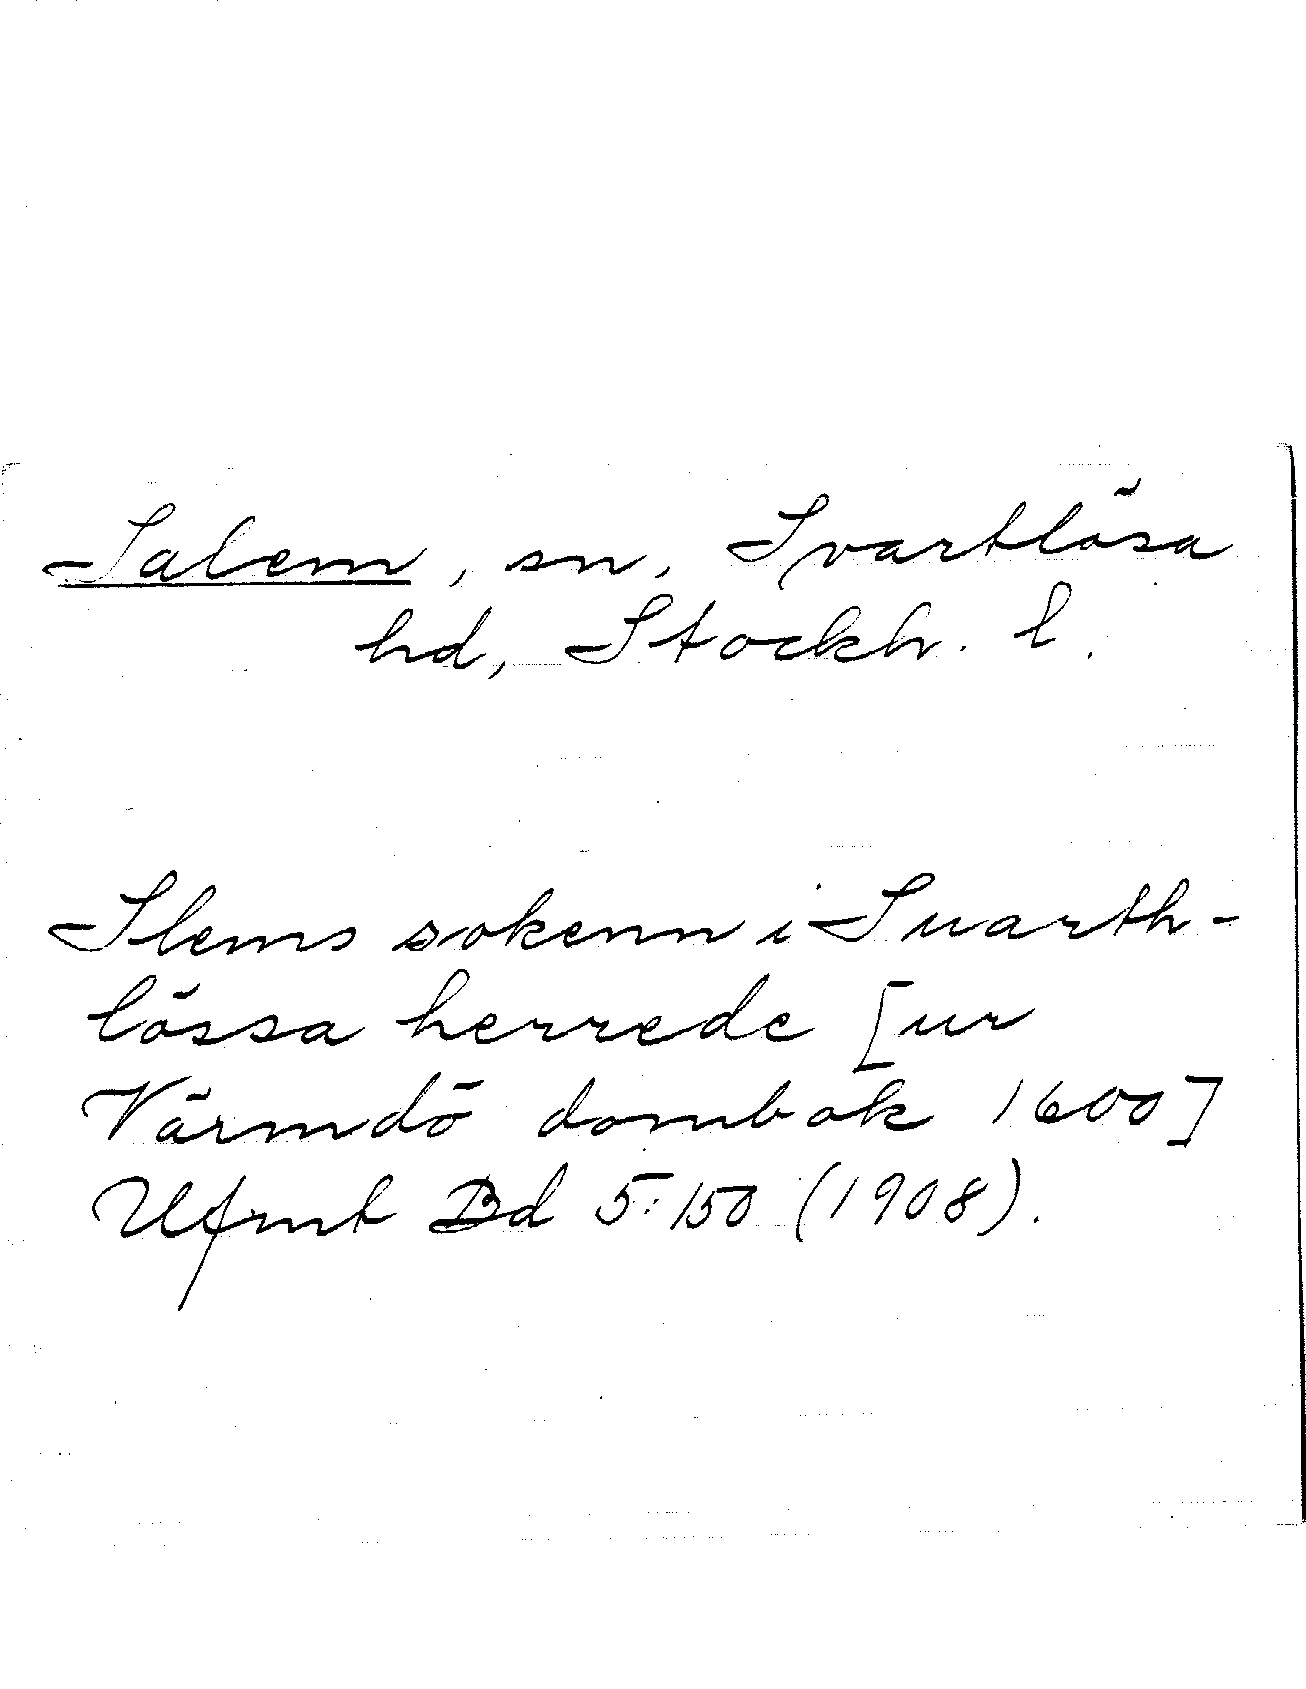 Salem, sn, Svartlösa
hd, Stockh. l.
Slems sokenn i Suarth-
lössa herrede [ur
Värmdö dombok 1600]
Ufmt Bd 5:150 (1908).